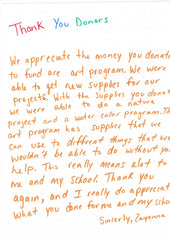 Thank You Donors
We appreciate the money you donate
to fund are art program. We were
able to get new supplies for our
projects. With the supplies you donate
we were able to do a nature
project and a water color program. The
art program has supplies that we
can use to different things that we
wouldn't be able to do without your
help. This really means alot to
me and my school. Thank you
again, and I really do appreciate
what you done for me and my school
Sincerly, Zayanna